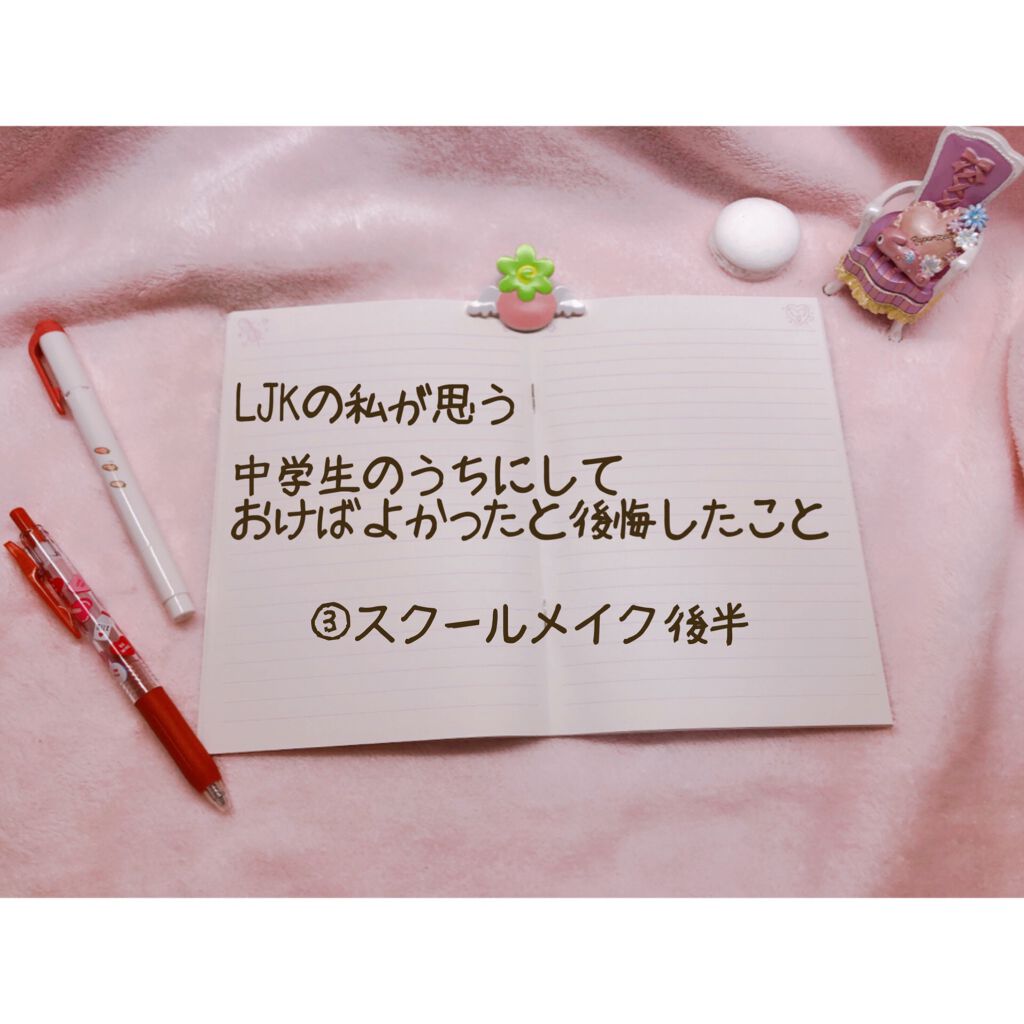 LJKの私が思う
中学生のうちにして
おけばよかったと後悔したこと
③スクールメイク後半